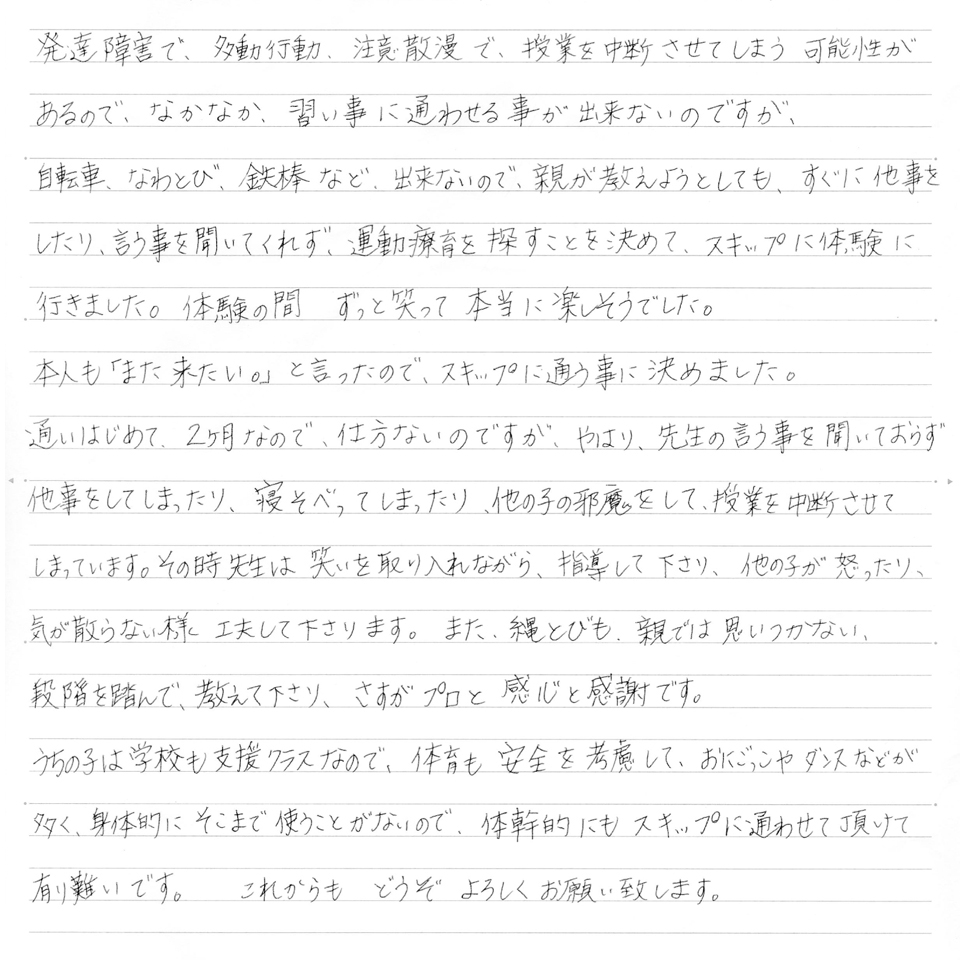 発達障害で、多動行動、注意散漫で、授業を中断させてしまう可能性が
あるので、なかなか、習い事に通わせる事が出来ないのですが、
自転車、なわとび、鉄棒など、出来ないので、親が教えようとしても、すぐに他事を
したり、言う事を聞いてくれず、運動療育を探すことを決めて、スキップに体験に
行きました。体験の間 ずっと笑って本当に楽しそうでした。
本人も「また来たい。」と言ったので、スキップに通う事に決めました。
通いはじめて、2ヶ月なので、仕方ないのですが、やはり、先生の言う事を聞いておらず
他事をしてしまったり、寝そべってしまったり、他の子の邪魔をして、授業を中断させて
しまっています。その時先生は笑いを取り入れながら、指導して下さり、他の子が怒ったり、
気が散らない様に工夫して下さります。また、縄とびも、親では思いつかない、
段階を踏んで、教えて下さり、さすがプロと感心と感謝です。
うちの子は学校も支援クラスなので、体育も安全を考慮して、おにごっこやダンスなどが
多く、身体的にそこまで使うことがないので、体幹的にもスキップに通わせて頂けて
有り難いです。 これからも どうぞよろしくお願い致します。